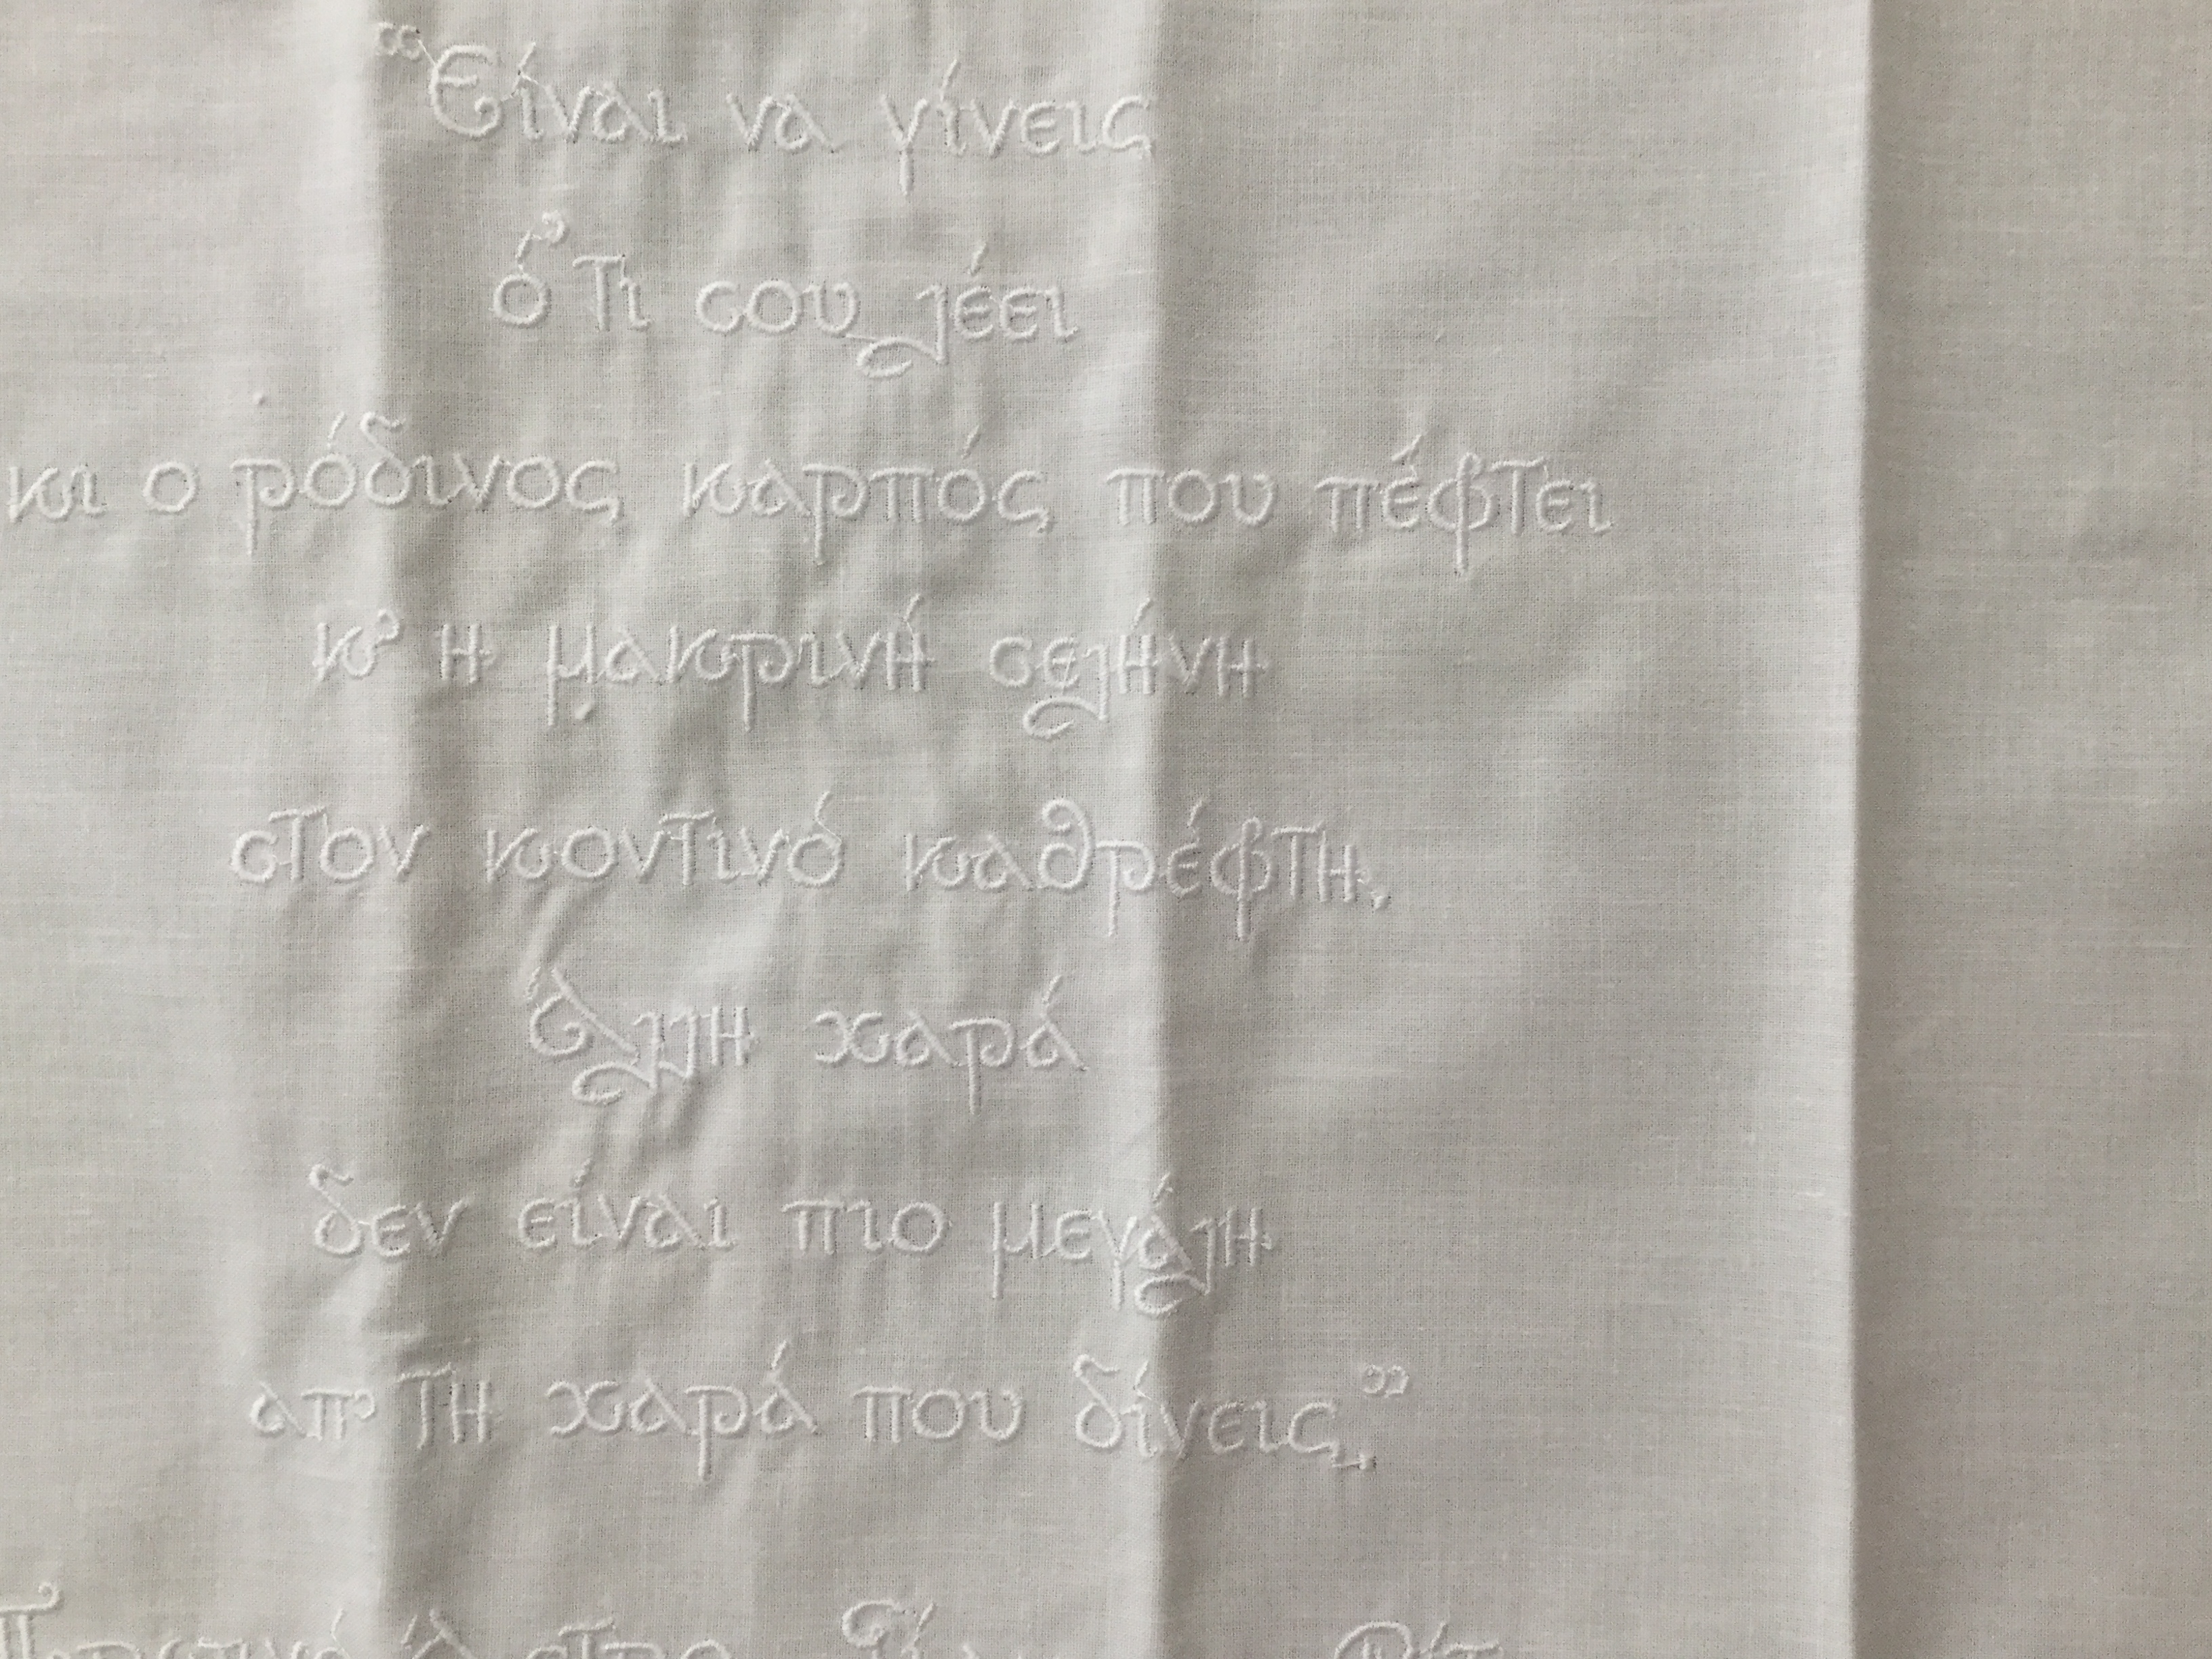 “Είναι να γίνεις
ό,τι σου λέει
κι ο ρόδινος καρπός που πέφτει
κ’ η μακρινή σελήνη
στον κοντινό καθρέφτη.
Άλλη χαρά
δεν είναι πιο μεγάλη
απ’ τη χαρά που δίνεις.”